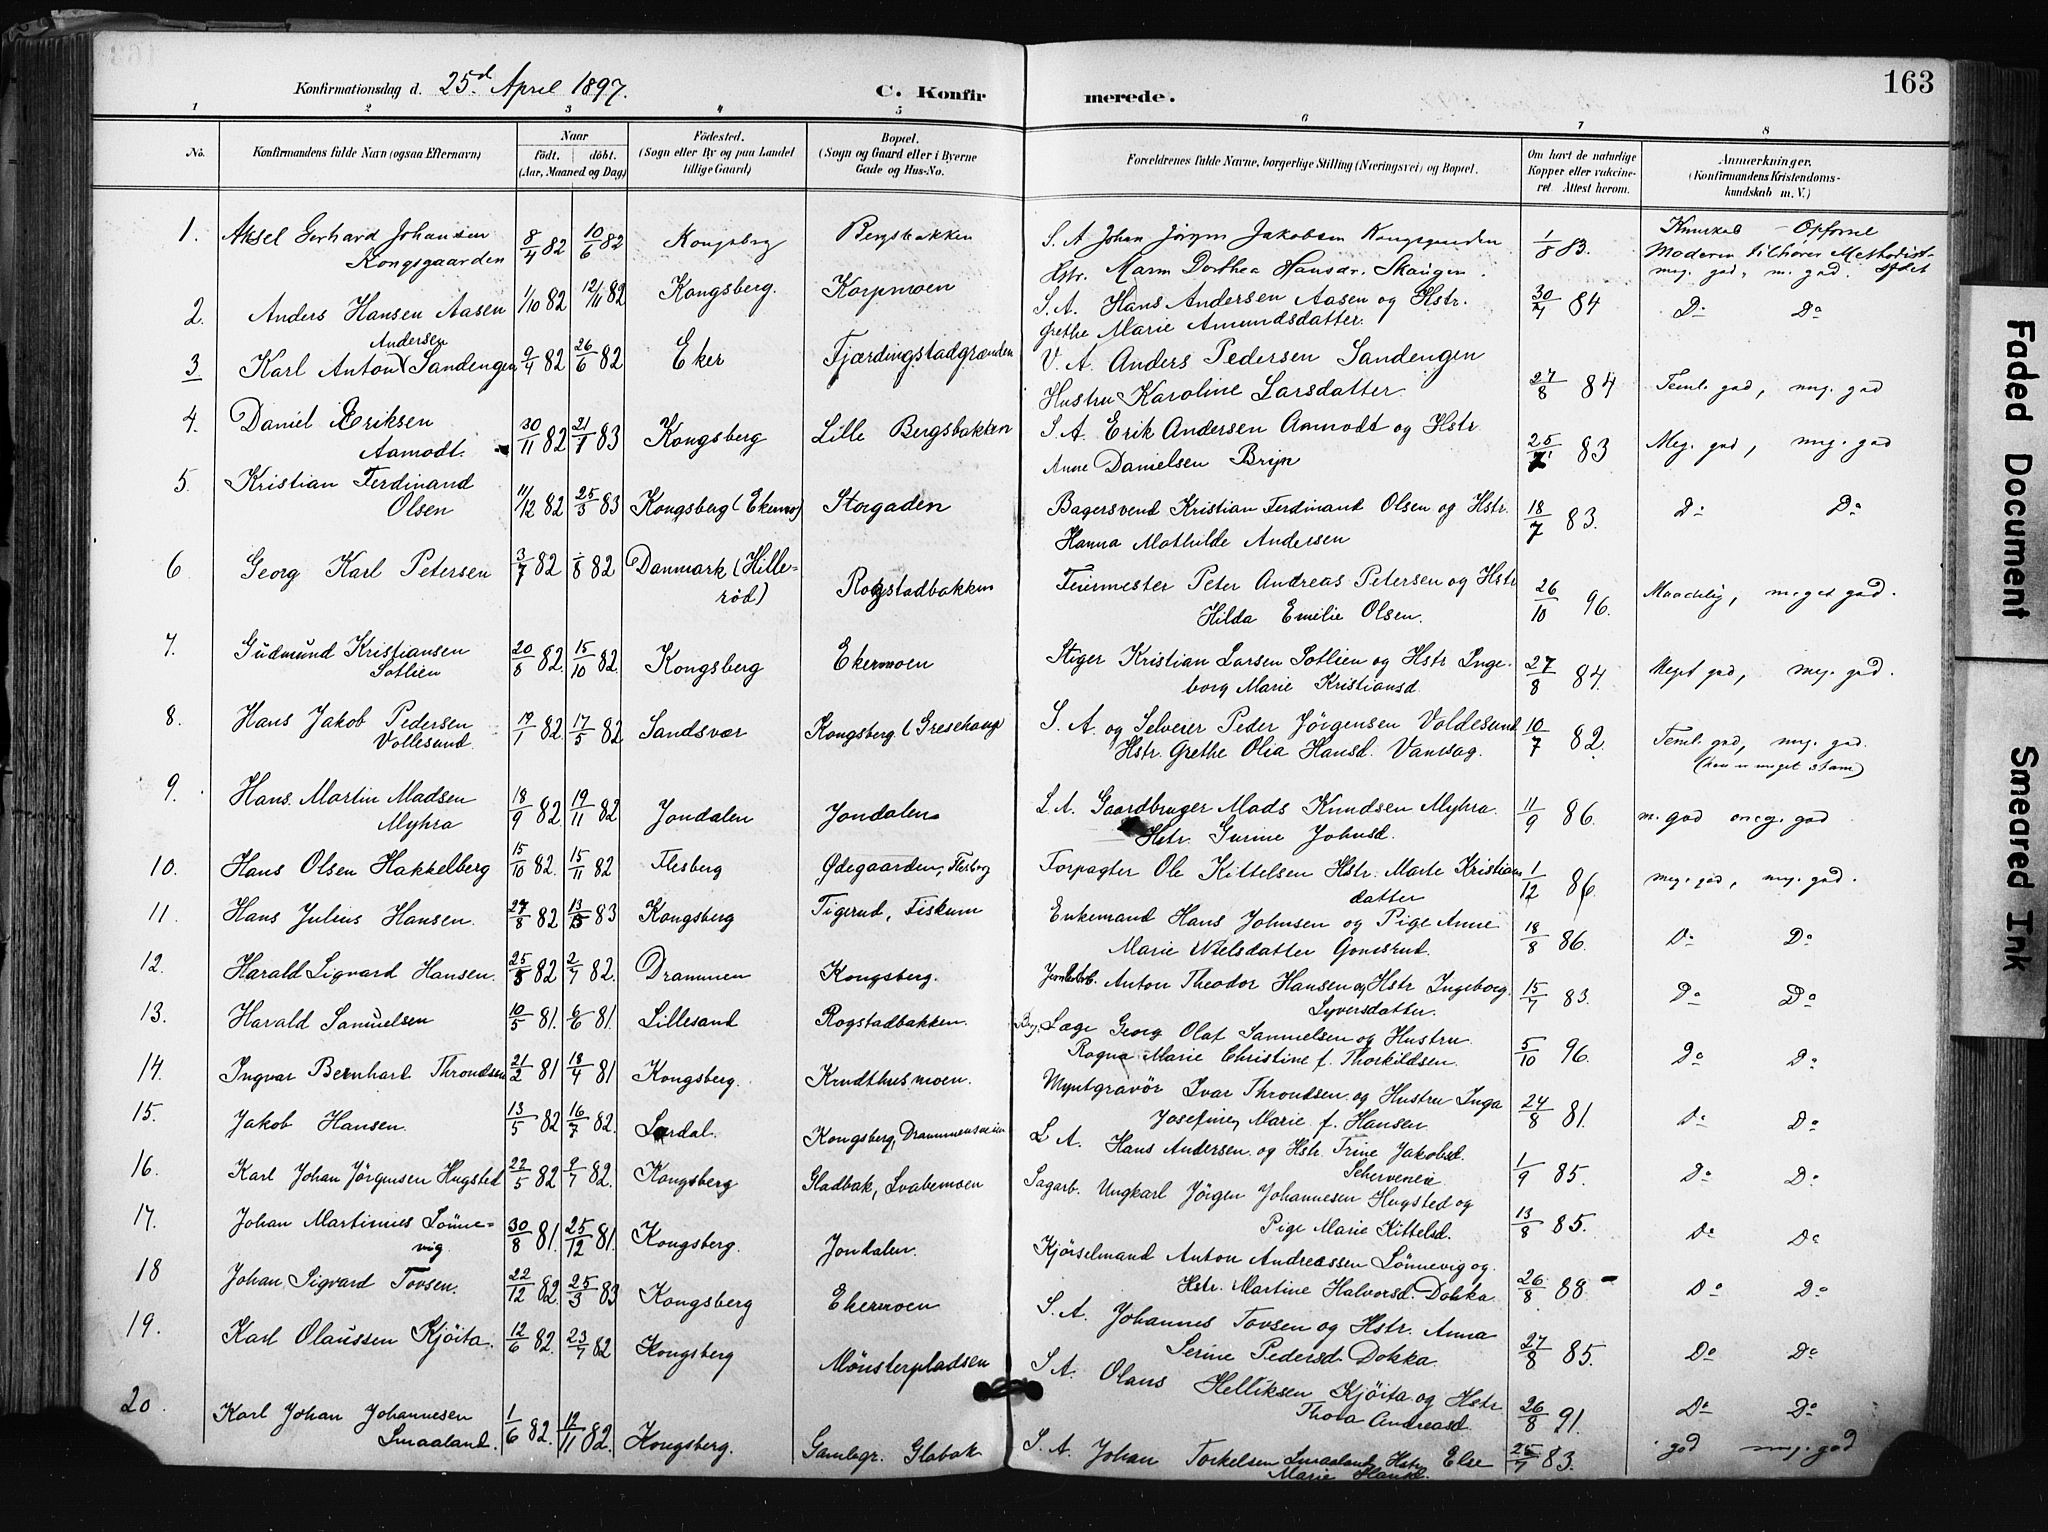 163
Konfirmationsdag d. 25d April 1897.
C. Konfirmerede.
1 2 3 4 5 6 7 8
No.
Konfirmandens fulde Navn (ogsaa Efternavn)
Naar
födt. döbt.
(Aar, Maaned og Dag)
Födested.
(Sogn eller By og paa Landet
tillige Gaard)
Bopæl.
(Sogn og Gaard eller i Byerne
Gade og Hus-No.
Forældrenes fulde Navne, borgerlige Stilling (Næringsvei) og Bopæl.
Om havt de naturlige
Kopper eller vakcine-
ret Attest herom.
Anmærkninger.
(Konfirmandens Kristendoms-
kundskab m. V.)
1. Aksel Gerhard Johansen 8/4 82 10/6 82 Kongsberg Bergsbakken S. A. Johan Jörgen Jakobsen Kongsgaarden 1/8 83. Kundskab Opførsel
Kongsgaarden Hstr. Maren Dorthea Hansdr. Skaugen. Moderen tilhører Methodist-
meg. god, m. god sfdet
2. Anders Hansen Aasen 1/10 82 12/11 82 Kongsberg. Korpmoen S. A. Hans Andersen Aasen og Hstr. 30/4 84 Do Do
Grethe Marie Amundsdatter.
Andersen
3 Karl Anton Sandengen 9/4 82 26/6 82 Eker Fjærdingstadgrænden V. A. Anders Pedersen Sandengen 27/8 84 Teml. god, meg. god
Hustru Karoline Larsdatter
4. Daniel Eriksen 30/11 82 21/1 83 Kongsberg Lille Bergsbakken S. A. Erik Andersen Aamodt og Hstr. 25/7 83 Meg. god, meg. god
Aamodt. Anne Danielsen Bryn
5. Kristian Ferdinand 11/12 82 25/3 83 Kongsberg (Ekermo) Storgaden Bagersvend Kristian Ferdinand Olsen og Hstr. 18/7 83. Do Do
Olsen Hanna Mathilde Andersen
6 Georg Karl Petersen 3/7 82 /8 82 Danmark (Hille- Rogstadbakken Feiermester Peter Andreas Petersen og Hstr 26/10 96. Maadelig, meget god.
röd) Hilda Emilie Olsen.
7. Gudmund Kristiansen 20/8 82 15/10 82. Kongsberg Ekermoen Stiger Kristian Larsen Sotlien og Hstr Inge- 27/8 84. Meget god, meg. god.
Sotlien borg Marie Kristiansd.
8. Hans Jakob Pedersen 19/1 82 17/5 82 Sandsvær Kongsberg (Gresehaug S. A. og Selveier Peder Jörgensen Voldesund 10/7 82. Teml. god, meg. god.
Vollesund. Hstr. Grethe Olea Hansd. Vansag. (han er meget stam)
9. Hans Martin Madsen 18/9 82. 19/11 82 Jondalen Jondalen S. A. Gaardbruger Mads Knudsen Myhra. 11/9 86. m. god meg. god
Myhra Hstr. Gurine Johnsd.
10. Hans Olsen Hakkelberg 15/10 82. 15/11 82 Flesberg Ødegaarden, Flesberg Forpagter Ole Kittelsen Hstr. Marte Kristians 1/12 86 meg. god, meg. god.
datter
11. Hans Julius Hansen. 27/8 82 13/5 83 Kongsberg Tigerud, Fiskum Enkemand Hans Johnsen og Pige Anne 18/8 86. Do Do
Marie Nielsdatter Gomsrud.
12. Harald Sigvard Hansen. 25/5 82 2/7 82. Drammen Kongsberg. Jernb.arb. Anton Theodor Hansen og Hstr Ingeborg. 15/7 83. Do Do
Syversdatter.
13. Harald Samuelsen 10/5 81. 6/6 81. Lillesand Rogstadbakken. Læge Georg Olaf Samuelsen og Hustru 5/10 96. Do Do
Ragna Marie Christine f. Thorkildsen.
14. Ingvar Bernhard Throndsen 21/2 81 18/4 81 Kongsberg. Krudthusmoen. Myntgravör Ivar Throndsen og Hustru Inga 24/8 81. Do Do
Josefine Marie f. Hansen
15. Jakob Hansen. 13/5 82 16/7 82. Lardal. Kongsberg, Drammensveien L A. Hans Andersen og Hstr. Trine Jakobsd. 1/9 85. Do Do
Schervenen
16. Karl Johan Jörgensen Hugsted 22/5 82 9/7 82. Kongsberg Gladbak, Svabemoen Sagarb. Ungkarl Jörgen Johannesen Hugsted og 13/8 85. Do Do
Pige Marie Kittelsd.
17. Johan Martinius Lönne- 30/8 81. 25/12 81. Kongsberg. Jondalen. Kjörselmand Anton Andreassen Lönnevig og. 26/8 88 Do Do
vig. Hstr. Martine Halvorsd. Dokka.
18 Johan Sigvard Tovsen. 22/12 82. 25/3 83 Kongsberg Ekermoen S. A. Johannes Tovsen og Hstr. Anna 27/8 85. Do Do
Serine Pedersd. Dokka.
19. Karl Olaussen Kjöita. 12/6 82. 23/7 82 Kongsberg Mönsterpladsen S. A. Olaus Helliksen Kjöita og Hstr 26/8 91. Do Do
Thora Andreasd.
20. Karl Johan Johannesen 1/6 82. 12/11 82. Kongsberg. Gamlegr. Glabak S. A. Johan Torkelsen Smaaland Hstr. Else 25/7 83. god meg. god
Smaaland. Marie Hansd.
Faded Document
Smeared Ink